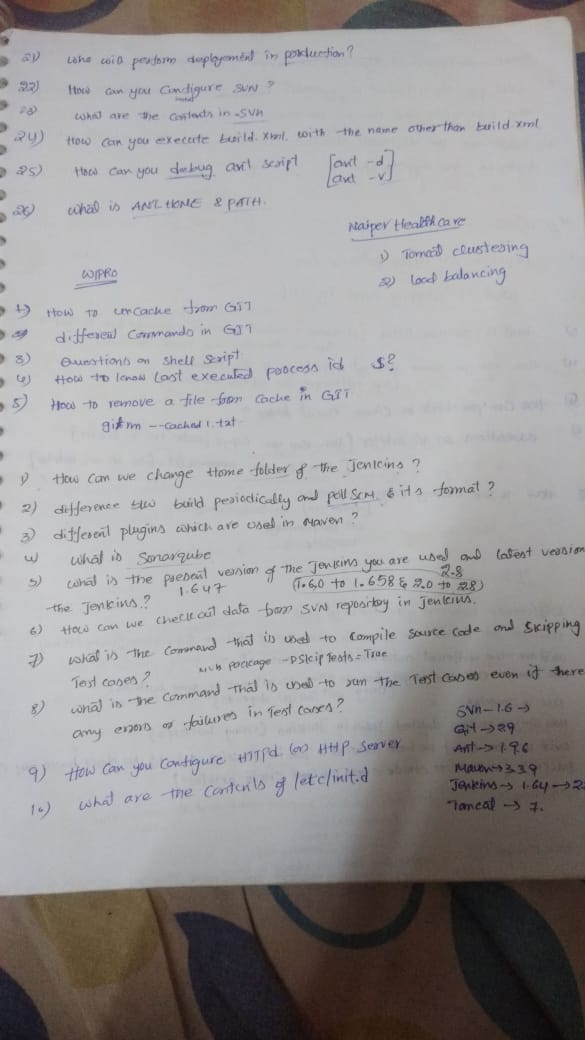 21) who will perform deployement in production?
22) How can you Configure SVN ?
23) what are the contents in .svn
24) How can you execute build.xml. with the name other than build xml
25) How can you debug ant script [ant -d]
[ant -v]
26) what is ANT HOME & PATH.
Naiper Health care
1) Tomcat clustering
2) load balancing
WIPRO
1) How To uncache from GIT
2) different Commands in GIT
3) Questions on shell script
4) How to know last executed process id $?
5) How to remove a file from cache in GIT
git rm --cached 1.txt
1) How can we change Home folder of the Jenkins ?
2) difference b/w build periodically and poll SCM & its format ?
3) different plugins which are used in Maven ?
4) what is Sonarqube
5) what is the present version of the Jenkins you are used and latest version
2.8
the Jenkins.? 1.647 (1.6,0 to 1.658 & 2.0 to 2.8)
6) How can we check out data from SVN repository in jenkins.
7) what is the command that is used to compile source code and skipping
Test cases? package -DSkip Tests = True
8) what is the command that is used to run the Test cases even if there
any errors or failures in Test cases?
9) How can you Configure HTTPd (or) HTTP Server
10) what are the contents of /etc/init.d
SVn - 1.6 →
Git → 29
Ant → 1.9.6
Maven → 339
Jenkins → 1.64 → 2
Tomcat → 7.